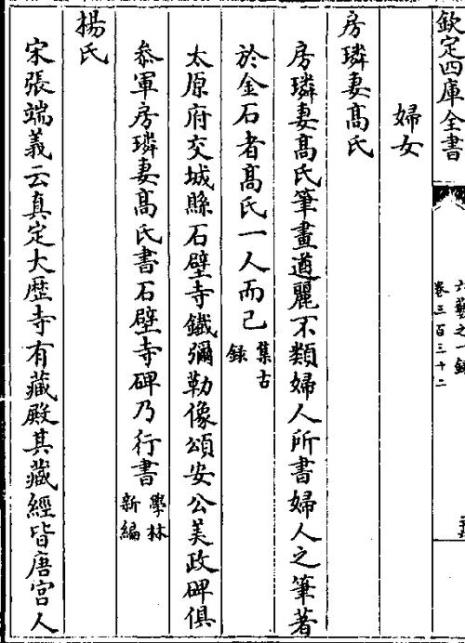 欽定四庫全書
六藝之一錄
卷三百三十二
婦女
房璘妻高氏
房璘妻高氏筆畫遒麗不類婦人所書婦人之筆著
於金石者高氏一人而已集古錄
太原府交城縣石壁寺鐵彌勒像頌安公美政碑俱
叅軍房璘妻高氏書石壁寺碑乃行書學林新編
揚氏
宋張端義云真定大歷寺有藏殿其藏經皆唐宮人